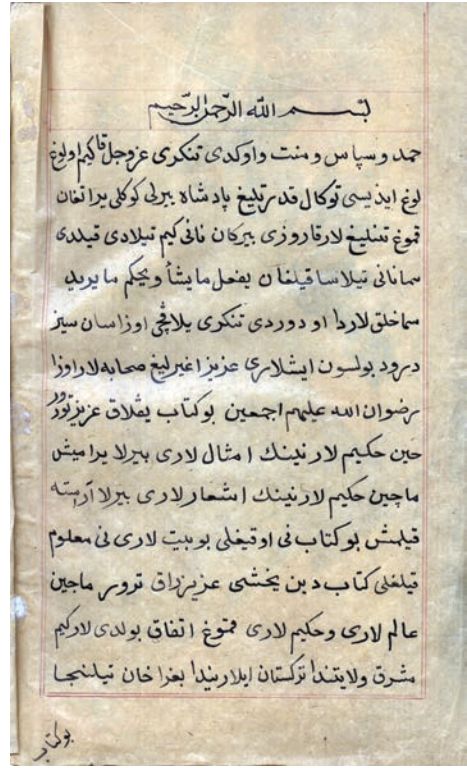 بسم الله الرّحمن الرّحيم
حمد و سپاس و منت و اوكدى تنكرى عزوجل قاكيم اولوغ
لوغ ايذيسى توكال قدرتليغ پادشاه ييرلى كوكلى يراتغان
قموغ تنليغ لارقا روزى بيركان نانى كيم تيلادى قيلدى
سمانانى تيلاسا قيلغان يفعل مايشأ ويحكم مايريد
سماخلق لاردا او دوردى تنكرى يلافچى اوزاسان سيز
درود بولسون ايشلارى عزيز اغيرليغ صحابه لار اوزا
رضوان الله عليهم اجمعين بوكتاب يقلاق عزيز تورور
حين حكيم لار نينك امثال لارى بيرلا يراميش
ماچين حكيم لار نينك اشعار لارى بيرلا آرسته
قيلمش بوكتاب نى اوقيغلى بوبيت لارى نى معلوم
قيلغلى كتاب دين يخشى عزيزراق ترور ماجين
عالم لارى وحكيم لارى قموغ اتفاق بولدى لاركيم
مشرق ولايتندا تركستان ايلاريندا بغرا خان تيلنجا
بوكتاب